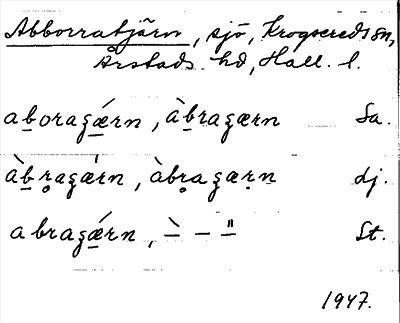 Abborratjärn, sjö, Krogsereds sn,
Årstads hd, Hall. l.
aboraʒǽrn, àbraʒærn Sa.
àbraʒǽrn, àbraʒærn dj.
abraʒǽrn, ` – " St.
1947.